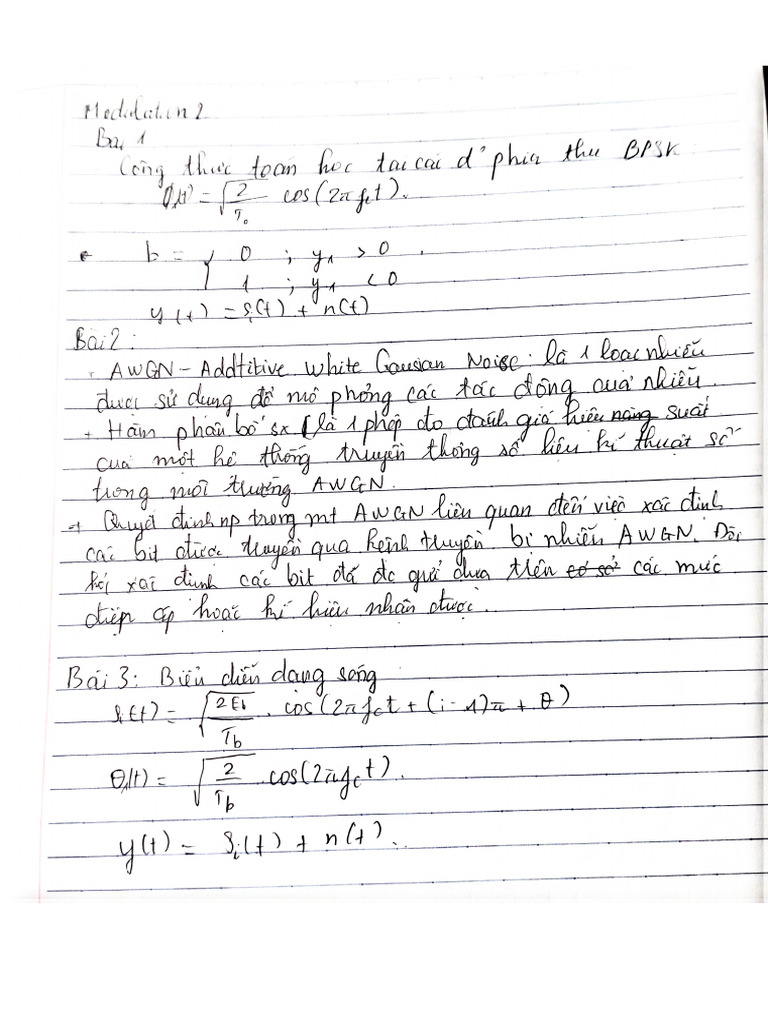 Modulation 2
Bài 1
Công thức toán học tại cái d' phía thu BPSK
= √(2/T₀) cos(2πf_c t).
b = { 0 ; y₁ > 0
1 ; y₁ < 0
y(t) = s_i(t) + n(t)
Bài 2:
+ AWGN - Addtitive White Gausian Noise: là 1 loại nhiễu
được sử dụng để mô phỏng các tác động của nhiễu.
+ Hàm phân bố sx là 1 phép đo đánh giá hiệu năng suất
của một hệ thống truyền thông số liệu kĩ thuật số
trong môi trường AWGN.
+ Quyết định np trong mt AWGN liên quan đến việc xác định
các bit được truyền qua kênh truyền bị nhiễu AWGN. Đòi
hỏi xác định các bit đã đc gửi dựa trên cơ sở các mức
điện áp hoặc kí hiệu nhận được.
Bài 3: Biểu diễn dạng sóng
s_i(t) = √(2E_b/T_b) . cos(2πf_c t + (i-1)π + θ)
θ₁(t) = √(2/T_b) cos(2πf_c t).
y(t) = s_i(t) + n(t).